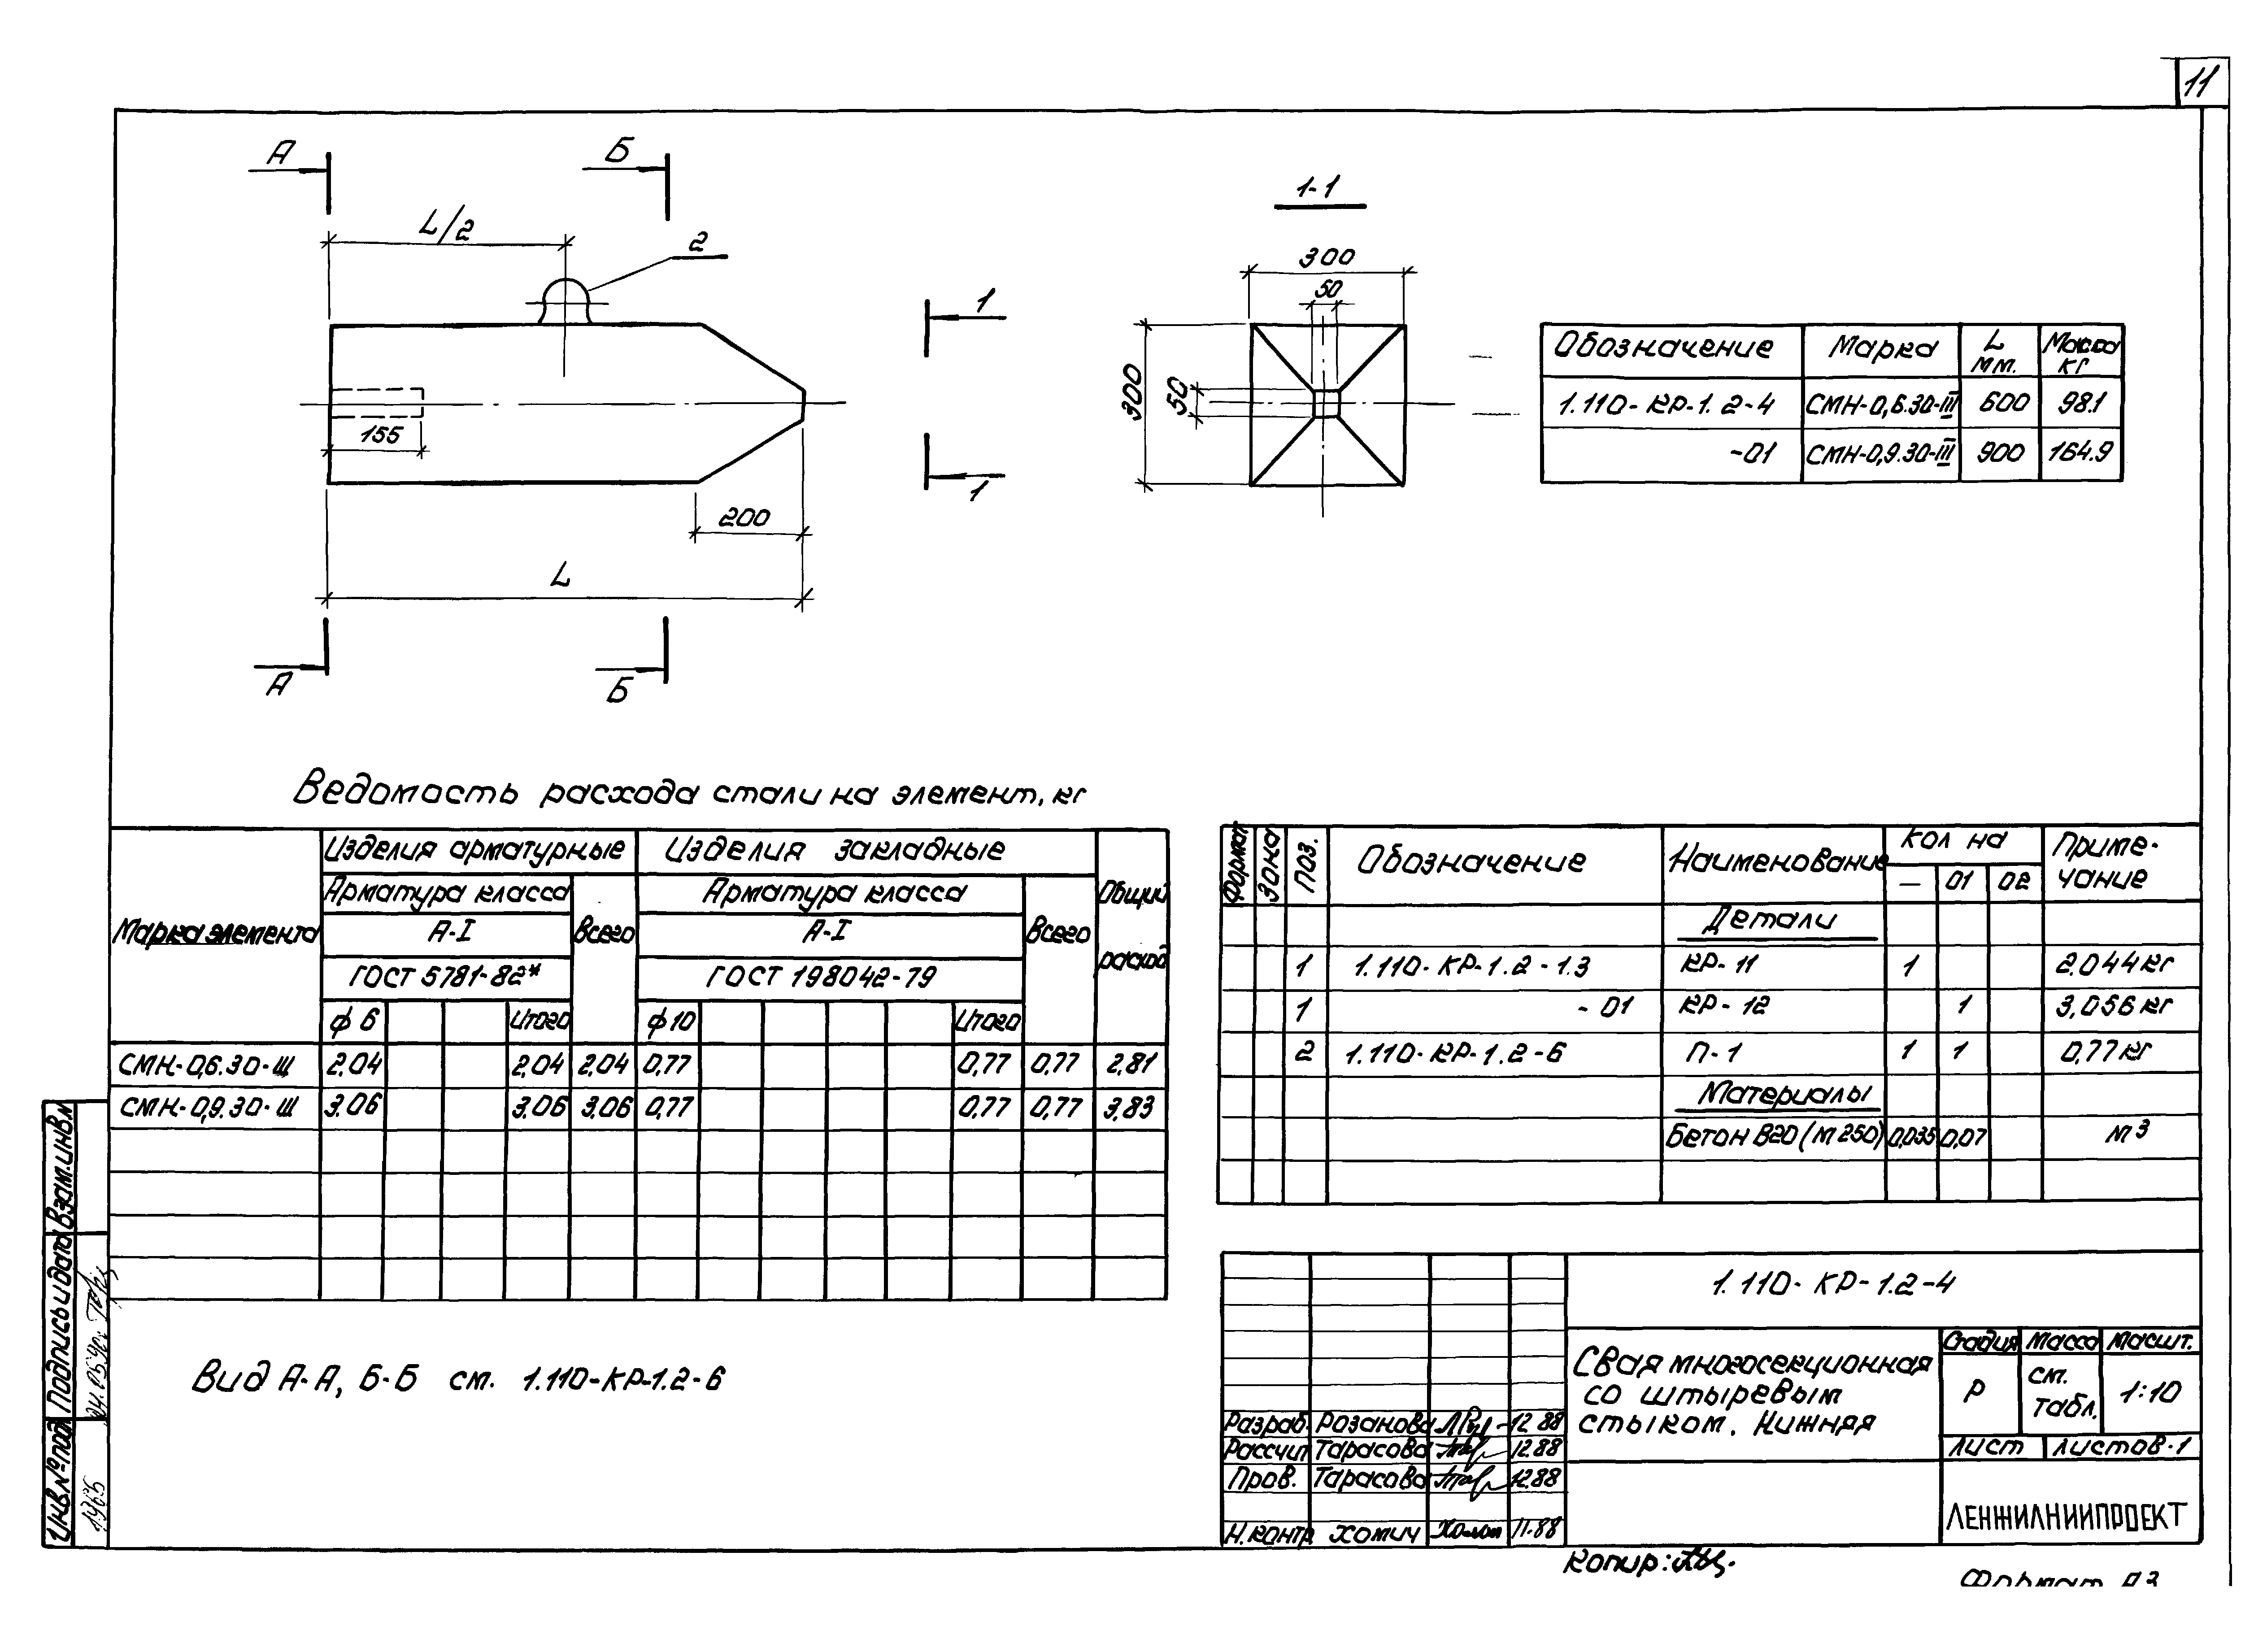 11
А Б
L/2
2
1
155
200
L
1
А Б
1-1
300
50
300
50
Обозначение Марка L мм. Масса кг
1.110-КР-1.2-4 СМН-0,6.30-III 600 98.1
-01 СМН-0,9.30-III 900 164.9
Ведомость расхода стали на элемент, кг
Марка элемента Изделия арматурные Изделия закладные Общий расход
Арматура класса Всего Арматура класса Всего
А-I А-I
ГОСТ 5781-82* ГОСТ 198042-79
ф6 Итого ф10 Итого
СМН-0,6.30-Ш 2,04 2,04 2,04 0,77 0,77 0,77 2,81
СМН-0,9.30-Ш 3.06 3.06 3,06 0,77 0,77 0,77 3,83
Вид А-А, Б-Б см. 1.110-КР-1.2-6
Формат Зона Поз. Обозначение Наименование Кол на Приме-
чание
— 01 02
Детали
1 1.110-КР-1.2-1.3 КР-11 1 2.044кг
1 -01 КР-12 1 3,056кг
2 1.110-КР-1.2-6 П-1 1 1 0,77кг
Материалы
Бетон В20 (М 250) 0,035 0,07 м3
1.110-КР-1.2-4
Свая многосекционная
со штыревым
стыком. Нижняя
Стадия Масса Масшт.
Р см. табл. 1:10
Лист Листов·1
ЛЕНЖИЛНИИПРОЕКТ
Разраб. Розанова 12.88
Рассчит Тарасова 12.88
Пров. Тарасова 12.88
Н.контр Хомич 11.88
Копир:
Формат А3
Взам.инв.№
Подпись и дата
Инв.№подл
04.05.90г.
1965